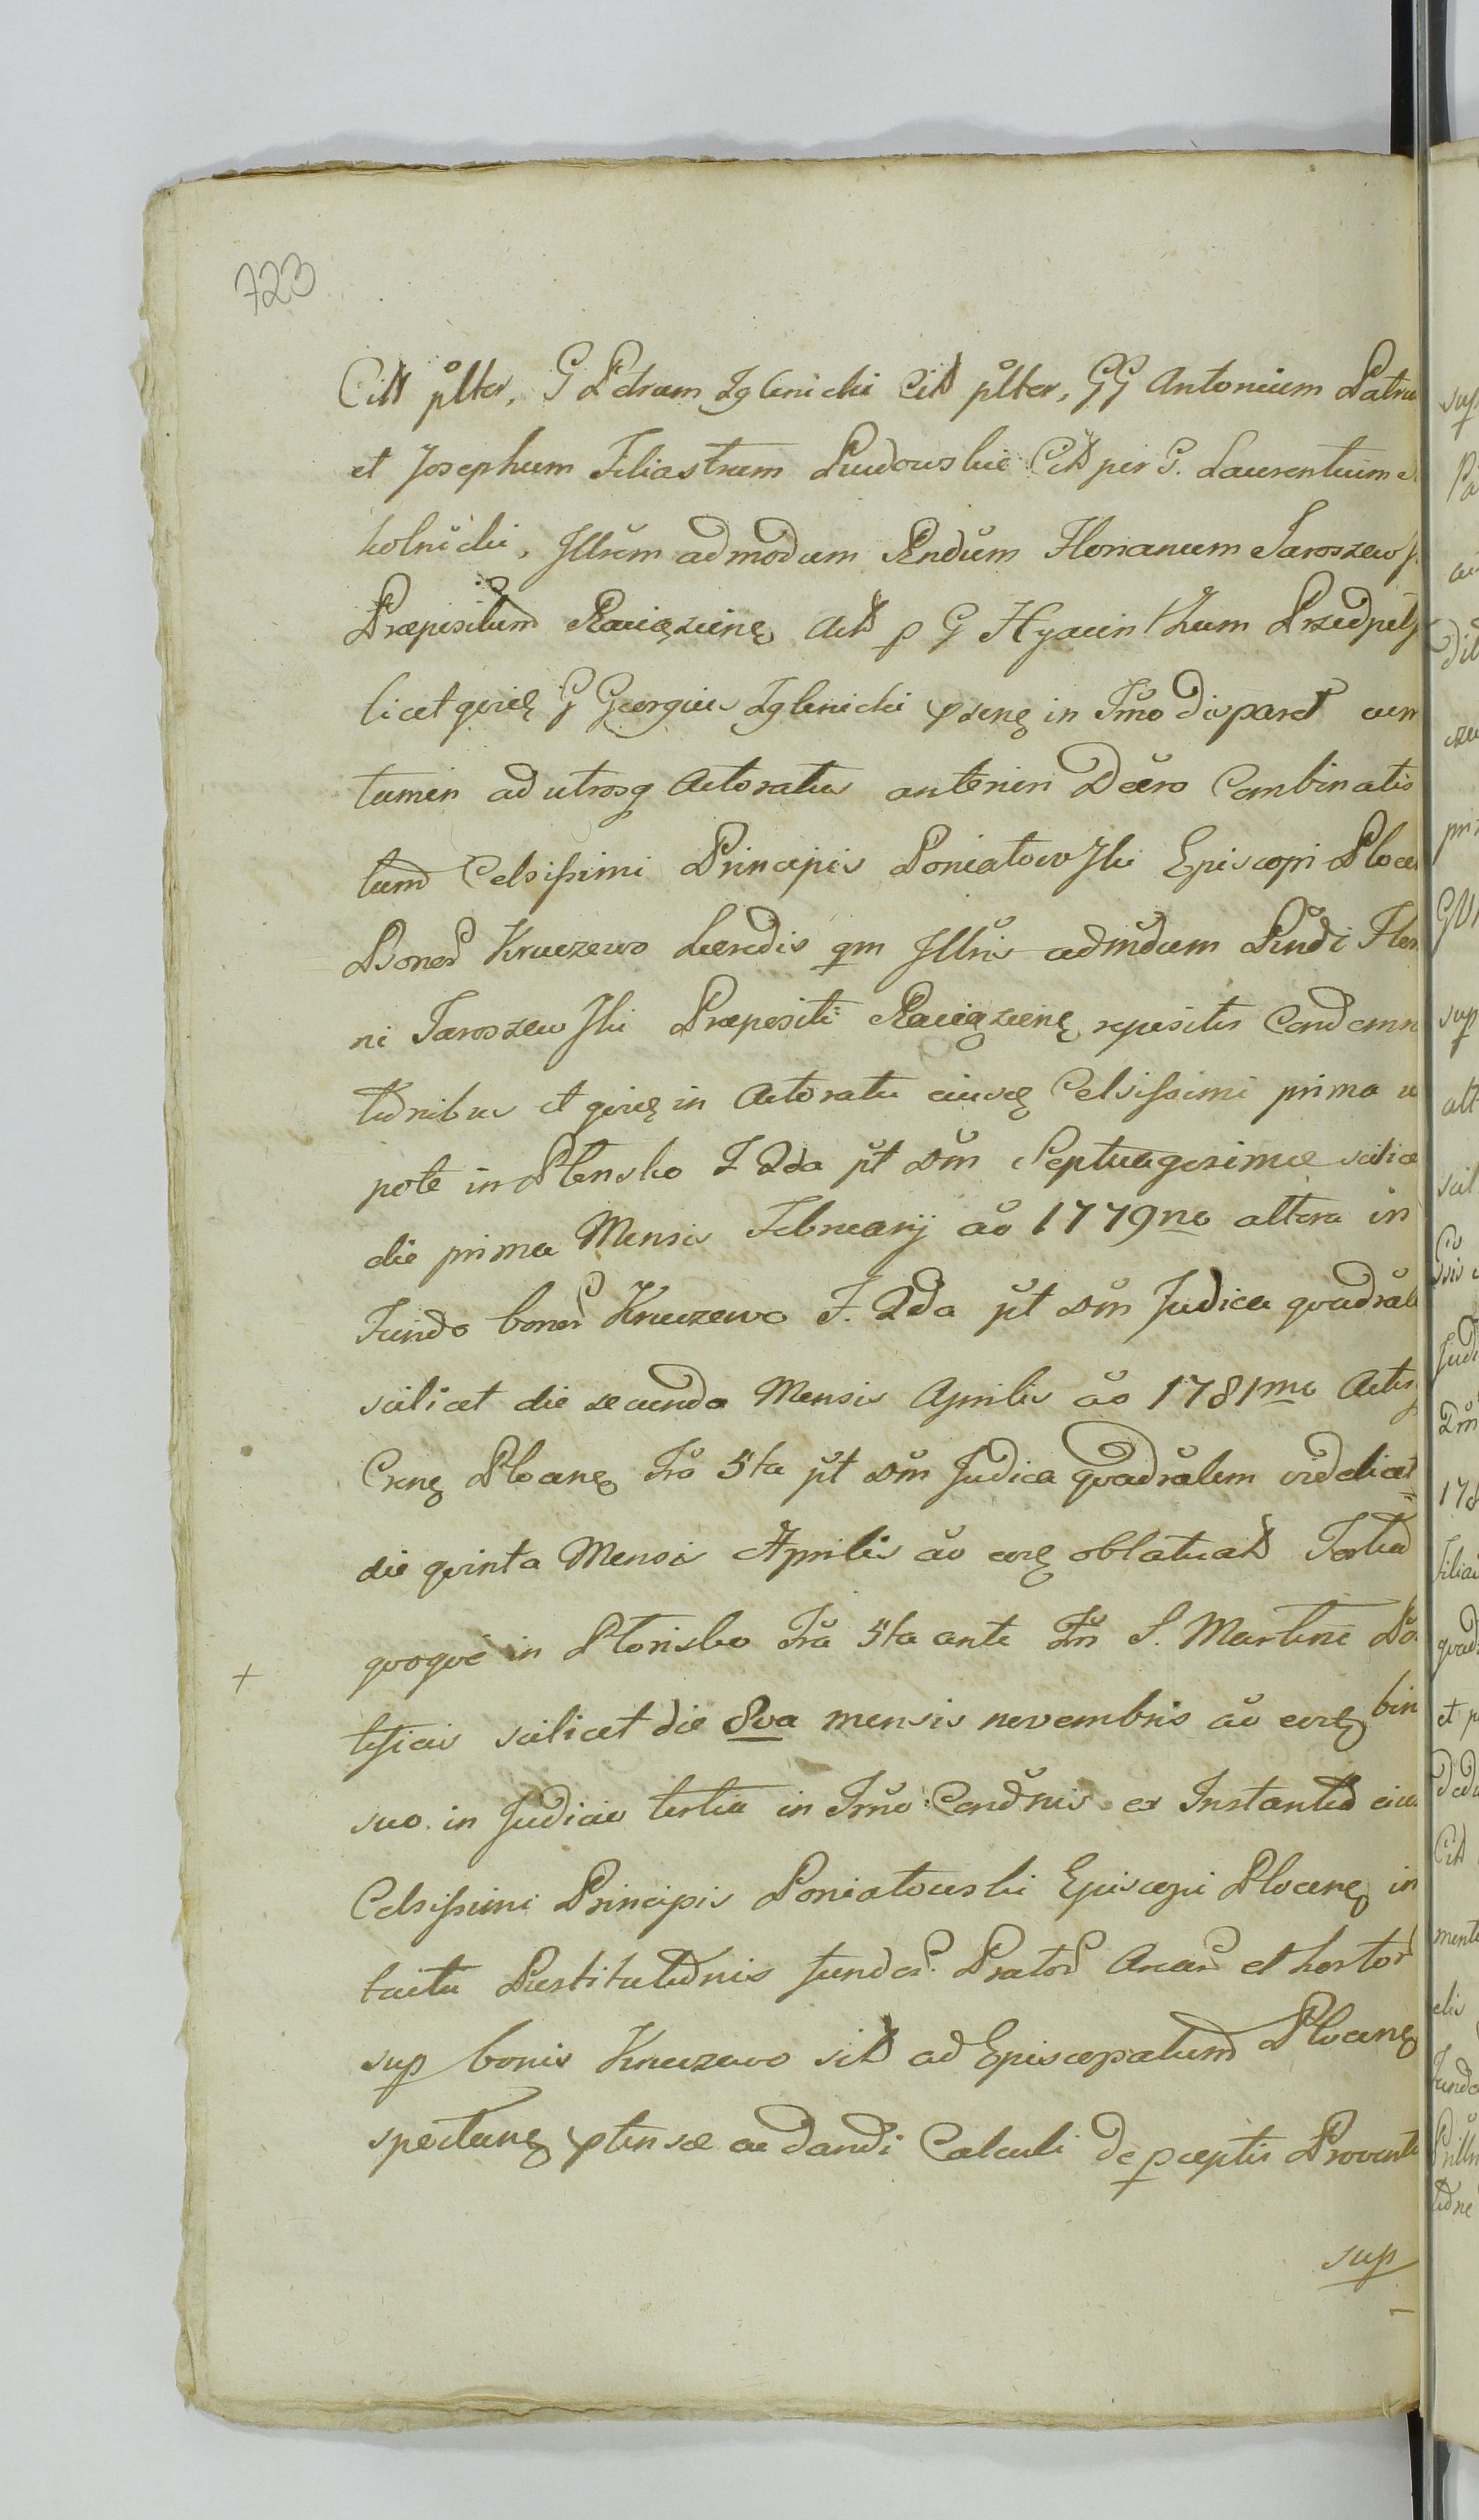 723
Citt plter, G Petrum Iglenicki Citt plter, GG Antonium Patru
et Josephum Filiastrum Rudowskie Citt per G. Laurentium
kolnicki, Illrem admodum Rndum Florianum Jaroszews
Præpositum Raciązięnę Act p G Hyacinthum
licet qvivię G Georgius Iglenicki psenę in Tmo disparet cum
tamen ad utrosq Actoratus anterieri Decro Combinatis
tum Celsissimi Principis Poniatowski Episcopi Ploce
Bonor Kruszewo hæredis qm Illris admdum Rndi Flor
ni Jaroszewski Præpositi Raciązięnę repositis Condemn
tionibus et qvivię in Actoratu eiusdę Celsissimi prima u
pote in Plonsko F 2da pt Dm Septuagesimæ scilice
die prima Mensis Februarij ao 1779no altera in
Fundo bonor Kruszewo F. 2da pt Dm Judica qvadral
scilicet die secunda Mensis Aprilis ao 1781mo Actis
Crenę Plocenę Fra 5ta pt Dm Judica Qvadralem videlicet
die qvinta Mensis Aprilis ao eodę oblatiat Tertia
qvoqve in Plonsko Fra 5ta ante Fm S. Martini Po
tificis scilicet die 8va mensis novembris ao eodę bin
suo in Judicio tertia in Tmo Condnis ex Instantia eius
Celsissimi Principis Poniatowski Episcopi Plocenę in
tactu Restitutionis fundor. Prator Arear et hortor
sup bonis Kruszewo sit ad Episcopatum Plocenę
spectanę ptensæ ac dandi Calculi de pceptis Provent
sup